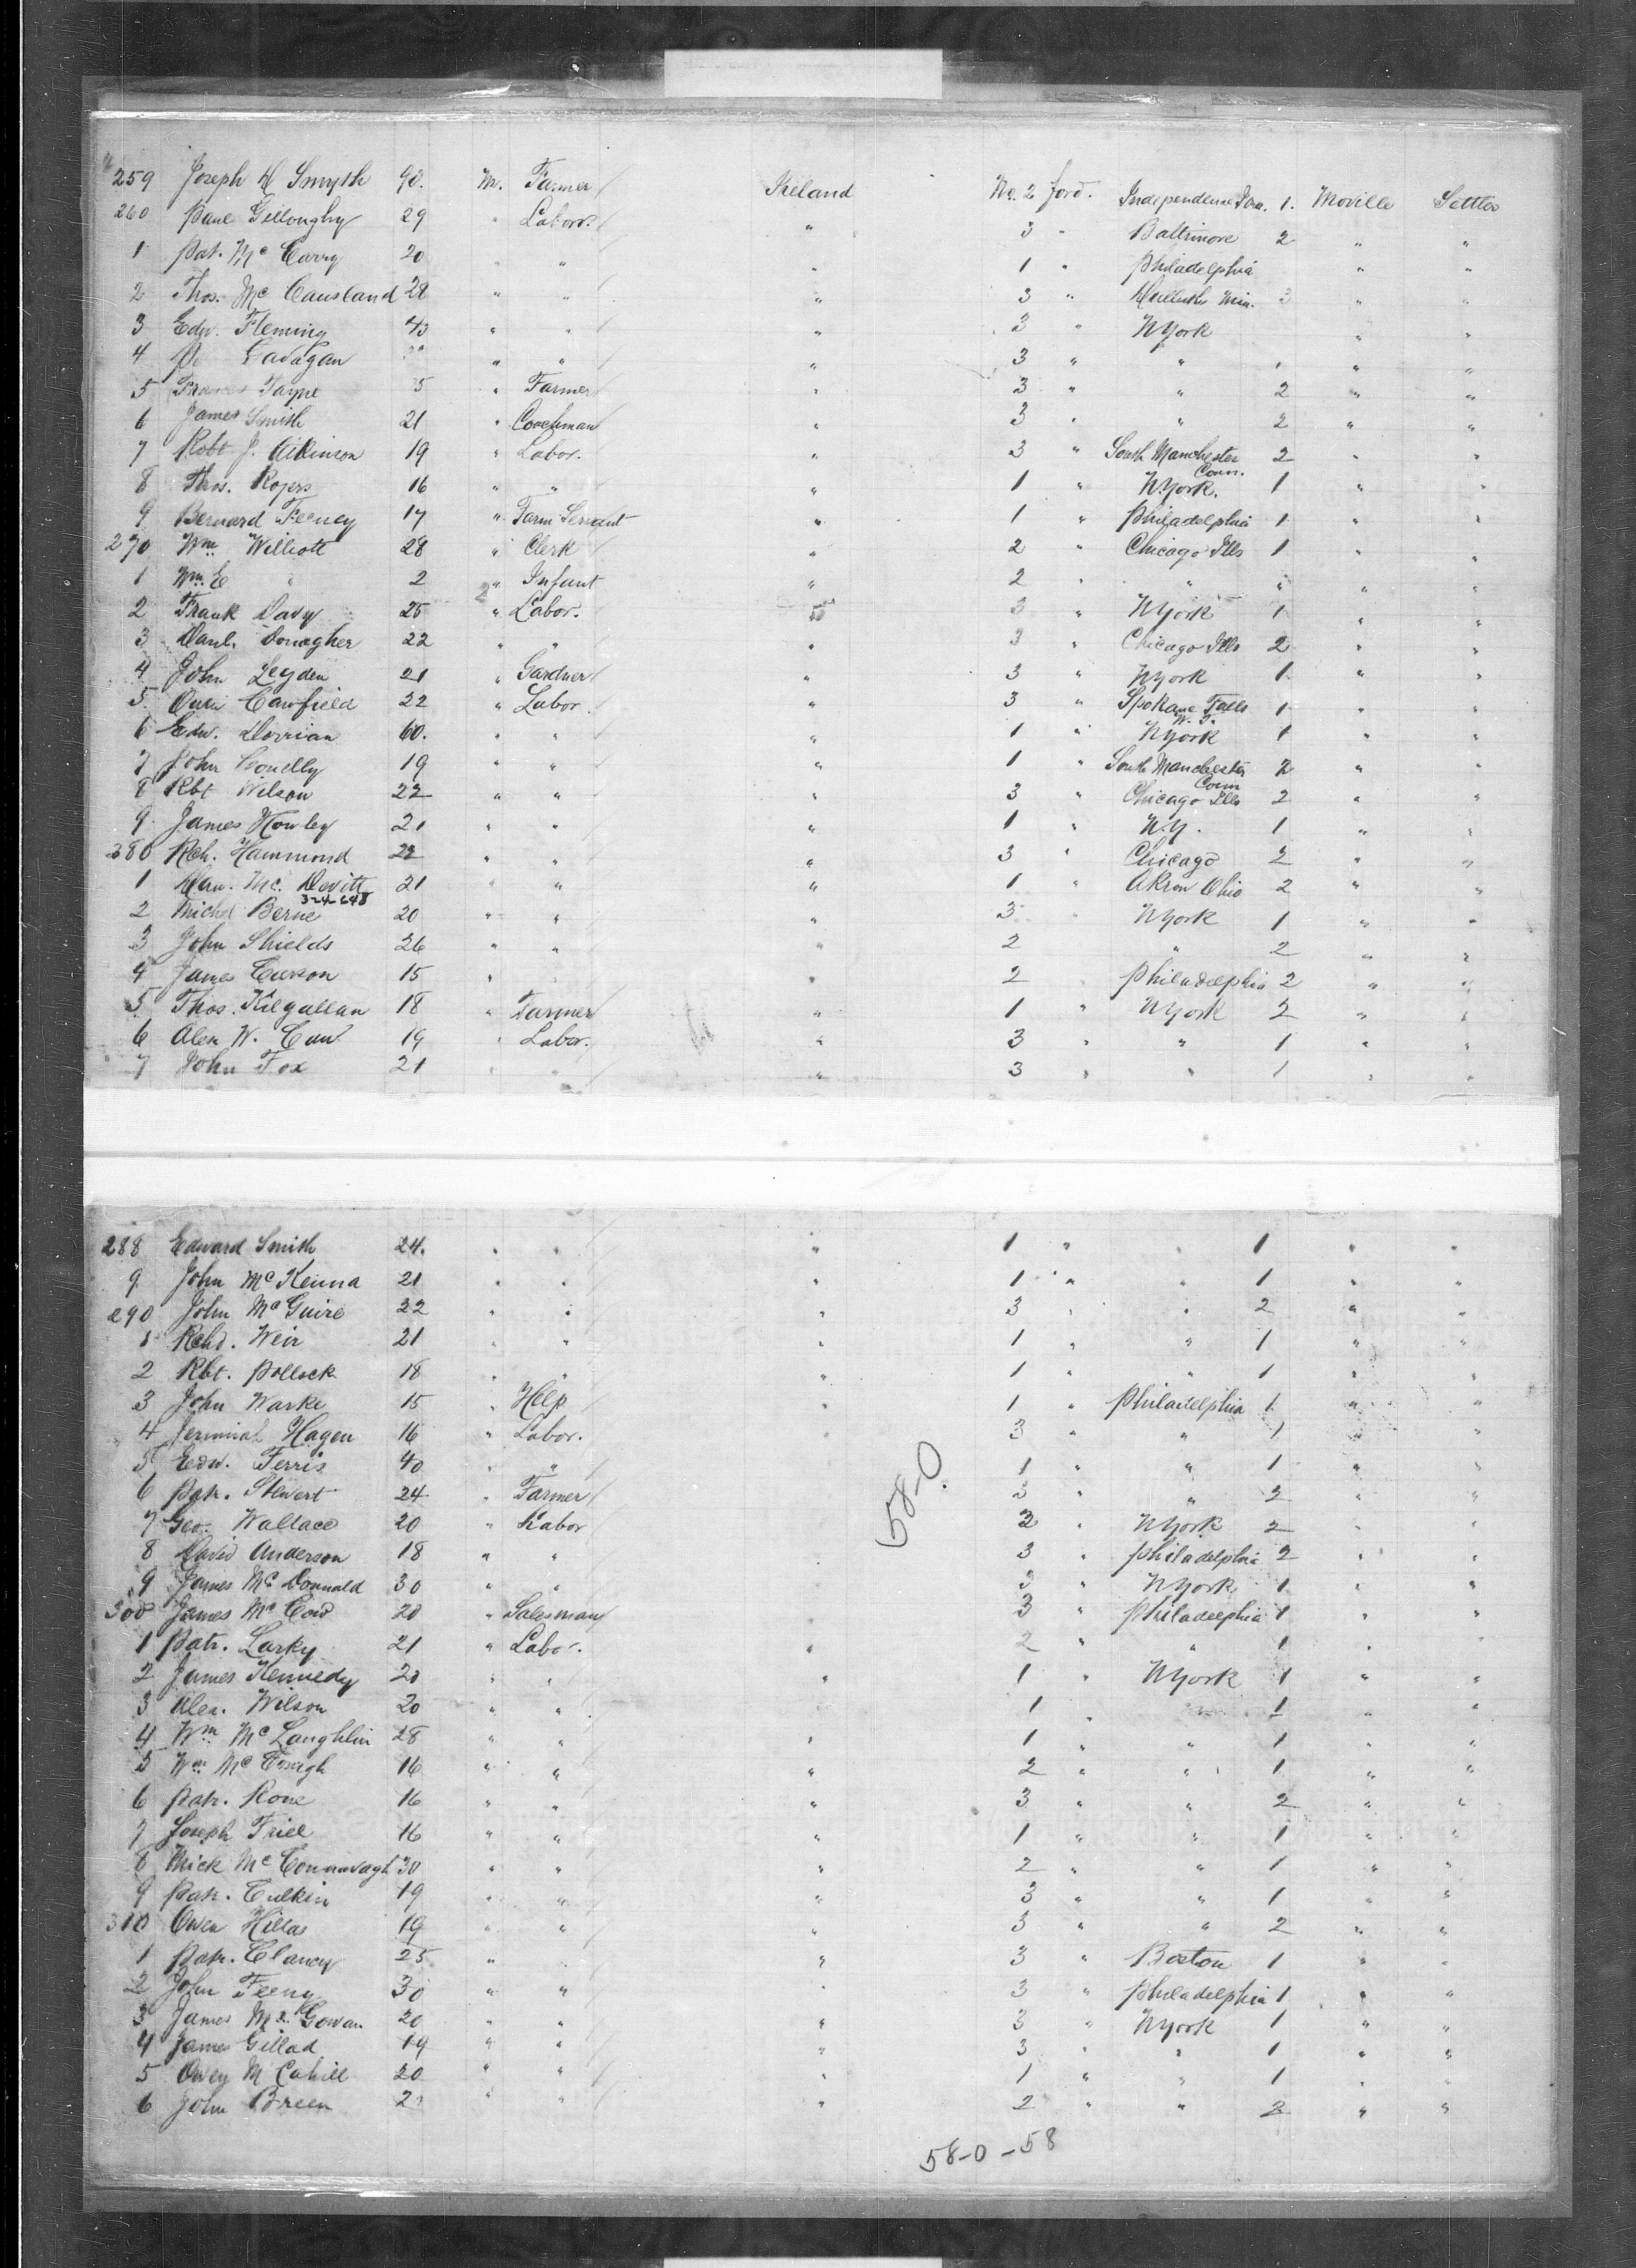 259 Joseph H Smyth 40. M. Farmer Ireland No. 2 ford. Independence Iowa. 1. Moville Settler
260 Pane Gilloughy 29 " Labor. " 3 " Baltimore 2 " "
1 Pat. Mc Carry 20 " " " 1 " Philadelphia " "
2 Thos. Mc Causland 28 " " " 3 " Min. 3 " "
3 Edw. Fleming 43 " " " 3 " NYork " "
4 Gavagan " " " 3 " " " " "
5 Payne 5 " Farmer " 3 " " 2 " "
6 James Smith 21 " Coachman " 3 " " 2 " "
7 Robt J. Atkinson 19 " Labor. " 3 " South Manchester Conn. 2 " "
8 Thos. Rogers 16 " " " 1 " NYork. 1 " "
9 Bernard Feeney 17 " Farm Servant " 1 " Philadelphia 1 " "
270 Wm Williott 28 " Clerk " 2 " Chicago Ills 1 " "
1 Wm. E " 2 " Infant " 2 " " " " "
2 Frank Davy 25 " Labor. " 3 " NYork 1 " "
3 Danl. Donagher 22 " " " 3 " Chicago Ills 2 " "
4 John Leyden 21 " Gardner " 3 " NYork 1 " "
5 Owen Cawfield 22 " Labor. " 3 " Spokane Falls W. T. 1 " "
6 Edw. Dorrian 60. " " " 1 " NYork 1 " "
7 John Conelly 19 " " " 1 " South Manchester Conn 2 " "
8 Rbt Wilson 22 " " " 3 " Chicago Ills 2 " "
9 James Howley 21 " " " 1 " N.Y. 1 " "
280 Rch. Hammond 22 " " " 3 " Chicago 2 " "
1 Dan. Mc. Devitt 21 " " " 1 " Akron Ohio 2 " "
324-648
2 Michel Berne 20 " " " 3 " NYork 1 " "
3 John Shields 26 " " " 2 " 2 " "
4 James Curson 15 " " " 2 " Philadelphia 2 " "
5 Thos. Kilgallan 18 " Farmer " 1 " NYork 2 " "
6 Alex W. Caw 19 " Labor. " 3 " " 1 " "
7 John Fox 21 " " " 3 " " 1 " "
288 Edward Smith 24. " " " 1 " " 1 " "
9 John Mc Kenna 21 " " " 1 " " 1 " "
290 John McGuire 22 " " " 3 " " 2 " "
1 Rchd. Weir 21 " " " 1 " " 1 " "
2 Rbt. Pollock 18 " " " 1 " " 1 " "
3 John Warke 15 " Help " 1 " Philadelphia 1 " "
4 Jermiah Hagen 16 " Labor. " 3 " " 1 " "
5 Edw. Ferris 40 " " 1 " " 1 " "
58-0
6 Patr. Stewart 24 " Farmer 3 " " 2 " "
7 Geo. Wallace 20 " Labor 3 " NYork 2 " "
8 David Anderson 18 " " 3 " Philadelphia 2 " "
9 James Mc Donnald 30 " " 3 " NYork 1 " "
300 James Mc Cord 20 " Salesman 3 " Philadelphia 1 " "
1 Patr. Larky 21 " Labor. " 2 " " 1 " "
2 James Kennedy 20 " " " 1 " NYork 1 " "
3 Alex. Wilson 20 " " 1 " " 1 " "
4 Wm Mc Laughlin 28 " " " 1 " " 1 " "
5 Wm Mc 16 " " " 2 " " 1 " "
6 Patr. Rone 16 " " " 3 " " 2 " "
7 Joseph Friel 16 " " " 1 " " 1 " "
8 Mick Mc Connavagh 30 " " " 2 " " 1 " "
9 Patr. Culkin 19 " " " 3 " " 1 " "
310 Owen Hillas 19 " " " 3 " " 2 " "
1 Patr. Clancy 25 " " " 3 " Boston 1 " "
2 John Feeny 30 " " " 3 " Philadelphia 1 " "
3 James Mc Gowan 20 " " " 3 " NYork 1 " "
4 James Gillad 19 " " " 3 " " 1 " "
5 Owen M Cahill 20 " " " 1 " " 1 " "
6 John Breen 21 " " " 2 " " 2 " "
58-0-58